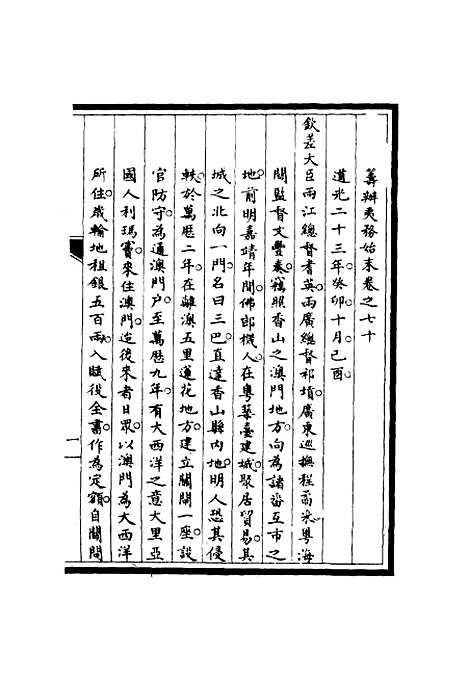 籌辦夷務始末卷之七十
道光二十三年癸卯十月己酉
欽差大臣兩江總督耆英兩廣總督祁𡎴廣東巡撫程矞采粵海
關監督文豐奏竊照香山之澳門地方向為諸番互市之
地前明嘉靖年間佛郎機人在粵藉臺建城聚居貿易其
城之北向一門名曰三巴直達香山縣內地明人恐其侵
軼於萬歷二年在離澳五里蓮花地方建立關閘一座設
官防守為通澳門戶至萬歷九年有大西洋之意大里亞
國人利瑪竇來住澳門迨後來者日眾以澳門為大西洋
所住歲輸地租銀五百兩入賦役全書作為定額自關閘